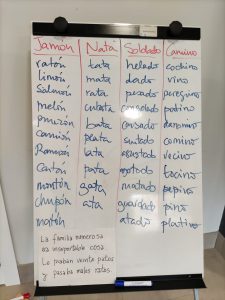 Jamón Nata Soldado Camino
ratón tata helado cochino
limón mata dado vino
Salmón rata pesado peregrino
melón culata consolado patino
pata cansado
camión plata sudado comino
Ramón lata asustado vecino
Catón pata fascino
montón gata mudado pepino
chupón ata guardado pino
matón atado platino
La familia numerosa
es insoportable cosa.
Le robaban veinte patos
y pasaba malos ratos.